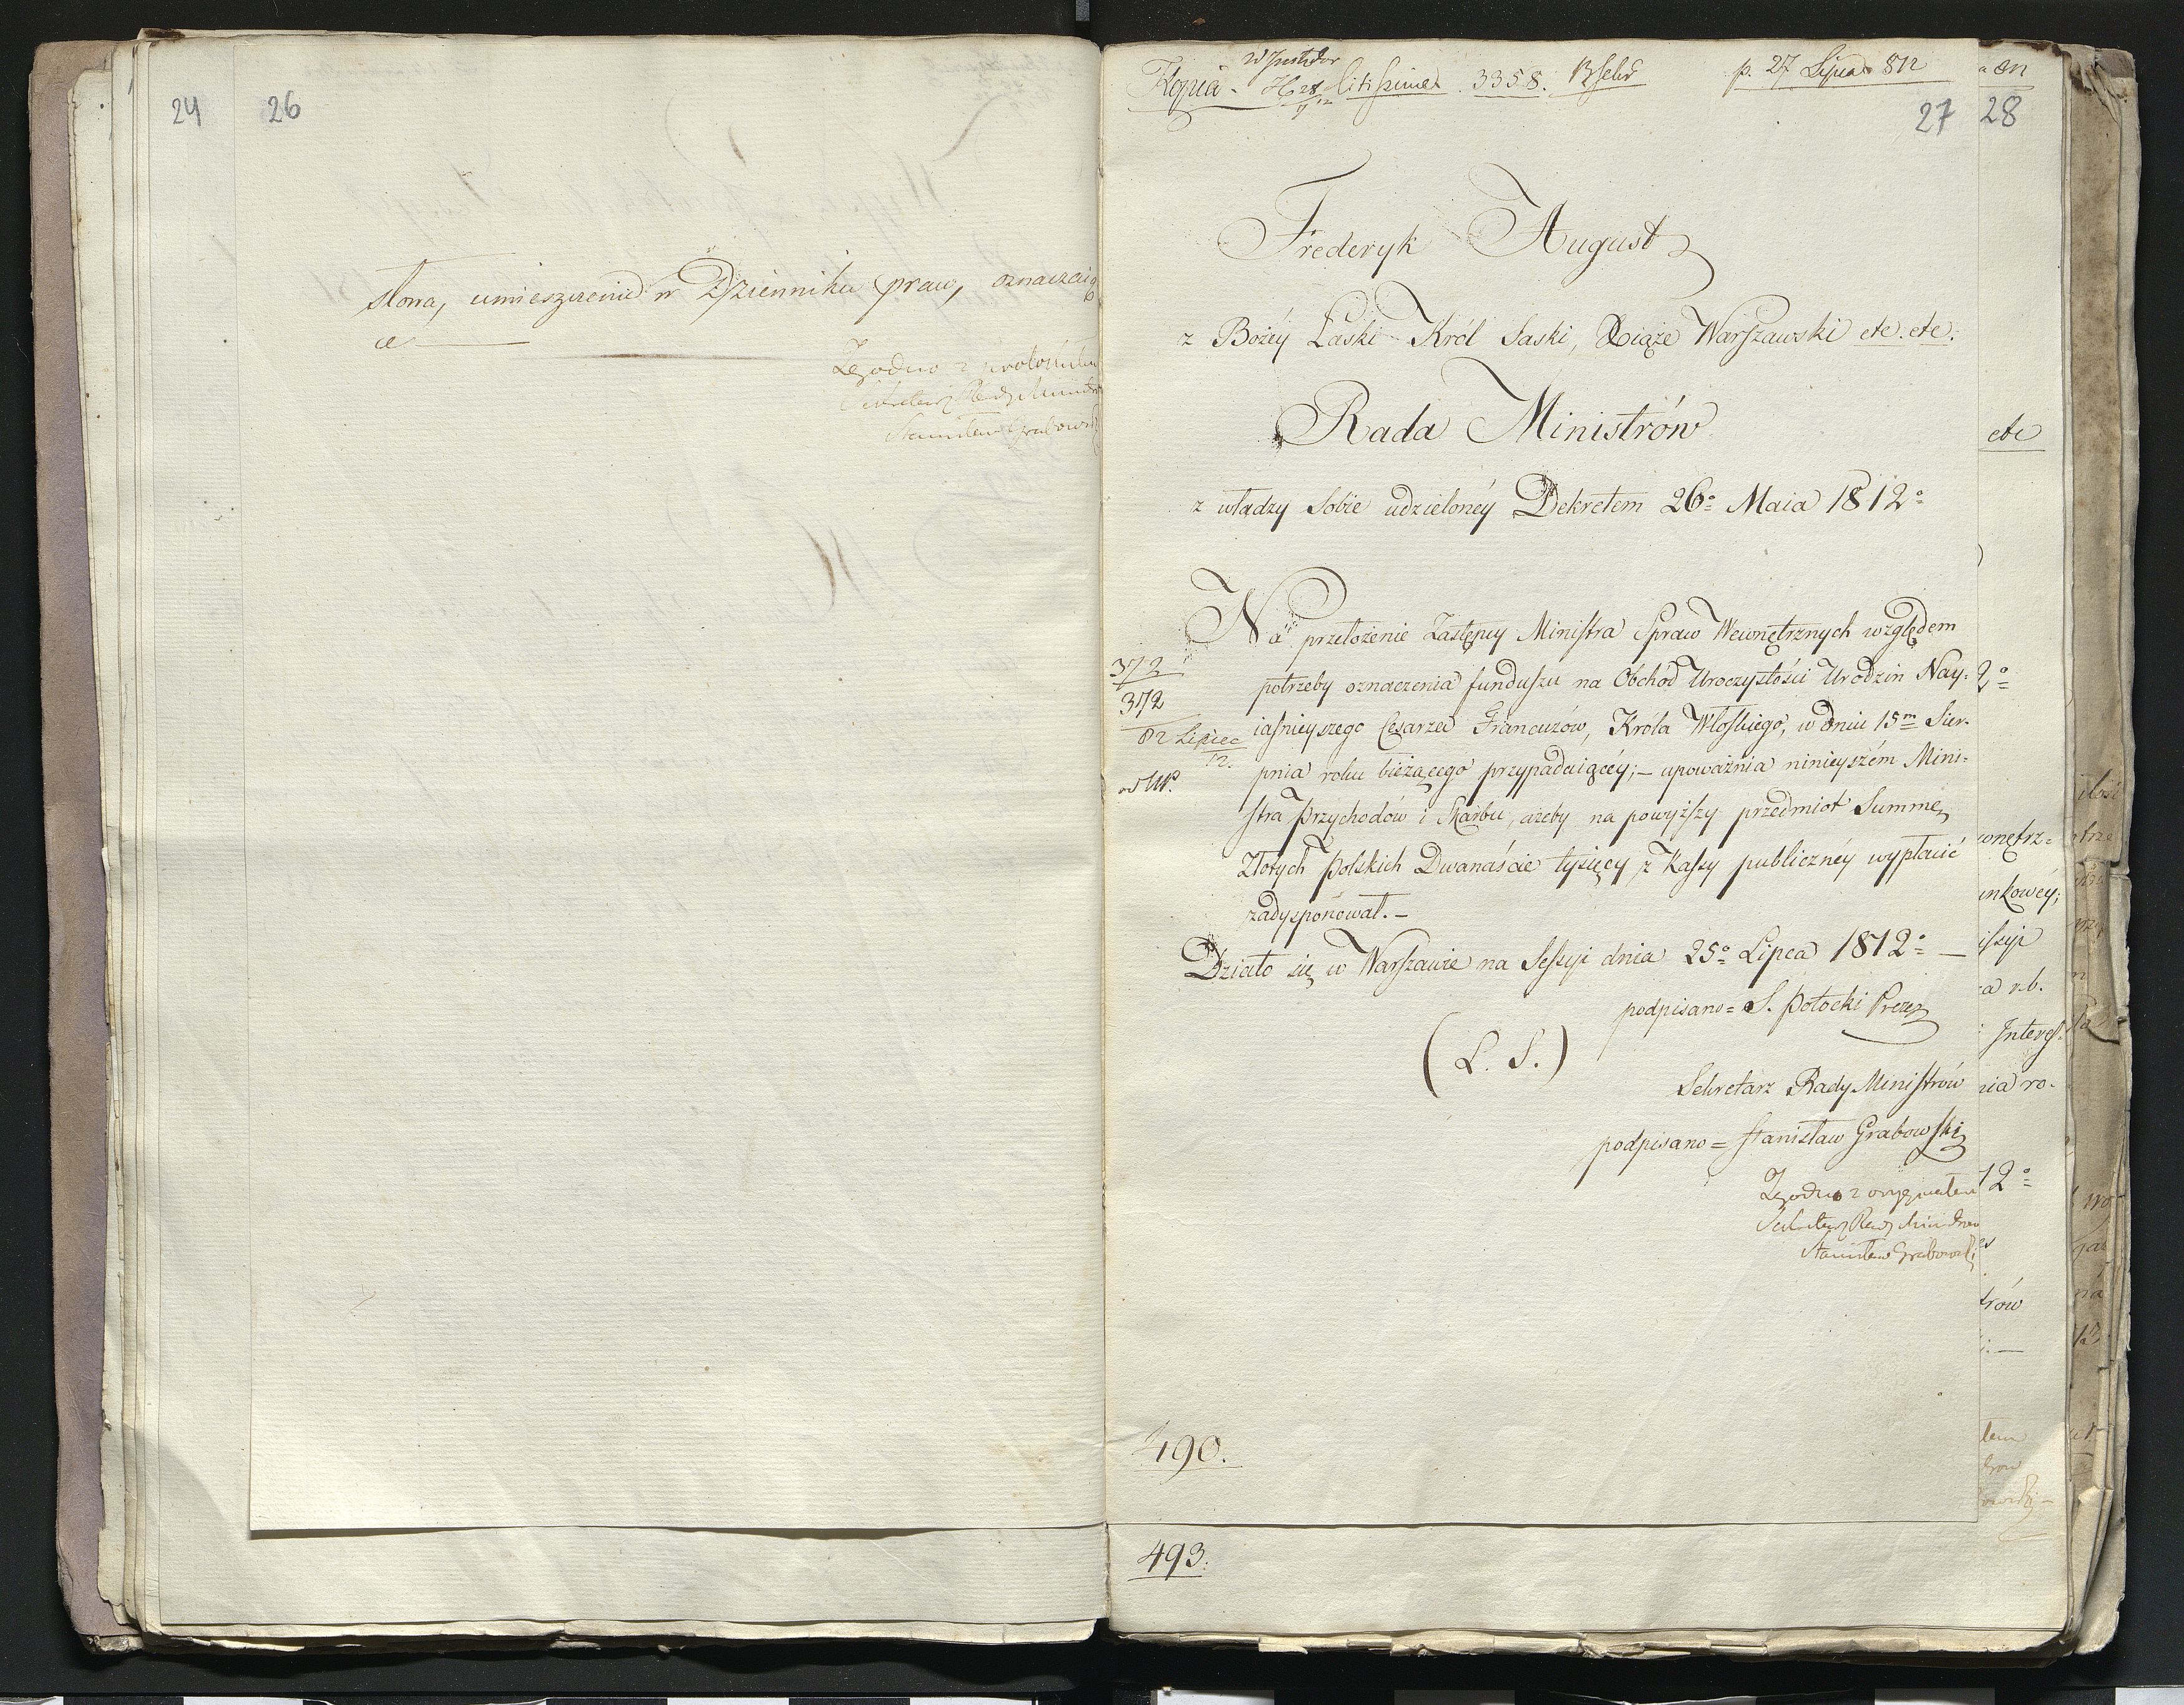 24 26
słowa, umieszczenie w Dzienniku praw, oznaczaią
ce
Zgodno z protokułem
Sekretarz Rady Ministrów
Stanisław Grabowski
Kopia. citissime 3358. p. 27 Lipca 812
27 28
Frederyk August
z Bożéy Łaski Król Saski, Xiąże Warszawski etc. etc.
Rada Ministrów
etc
z władzy Sobie udzielonéy Dekretem 26º Maia 1812º
Na przełożenie Zastępcy Ministra Spraw Wewnętrznych względem
372
potrzeby oznaczenia funduszu na Obchód Uroczystości Urodzin Nay-
2º
372
iaśnieyszego Cesarza Francuzów, Króla Włoskiego, w dniu 15m Sier-
82 Lipiec
12.
pnia roku bieżącego przypadaiącéy; – upoważnia ninieyszém Mini-
stra Przychodów i Skarbu, ażeby na powyższy przedmiot Summę
Złotych Polskich Dwanaście tysięcy z Kassy publicznéy wypłacić
wnętrz=
zadysponował. –
unkowéy;
Działo się w Warszawie na Sessyi dnia 25º Lipca 1812º –
issyi
podpisano = S. Potocki Prezes
a r.b.
(L. S.)
Interes-
Sekretarz Rady Ministrów
nia ro-
podpisano = Stanisław Grabowski
12º
Zgodno z oryginałem
Sekretarz Rady Ministrów
Stanisław Grabowski
trów
490.
493.